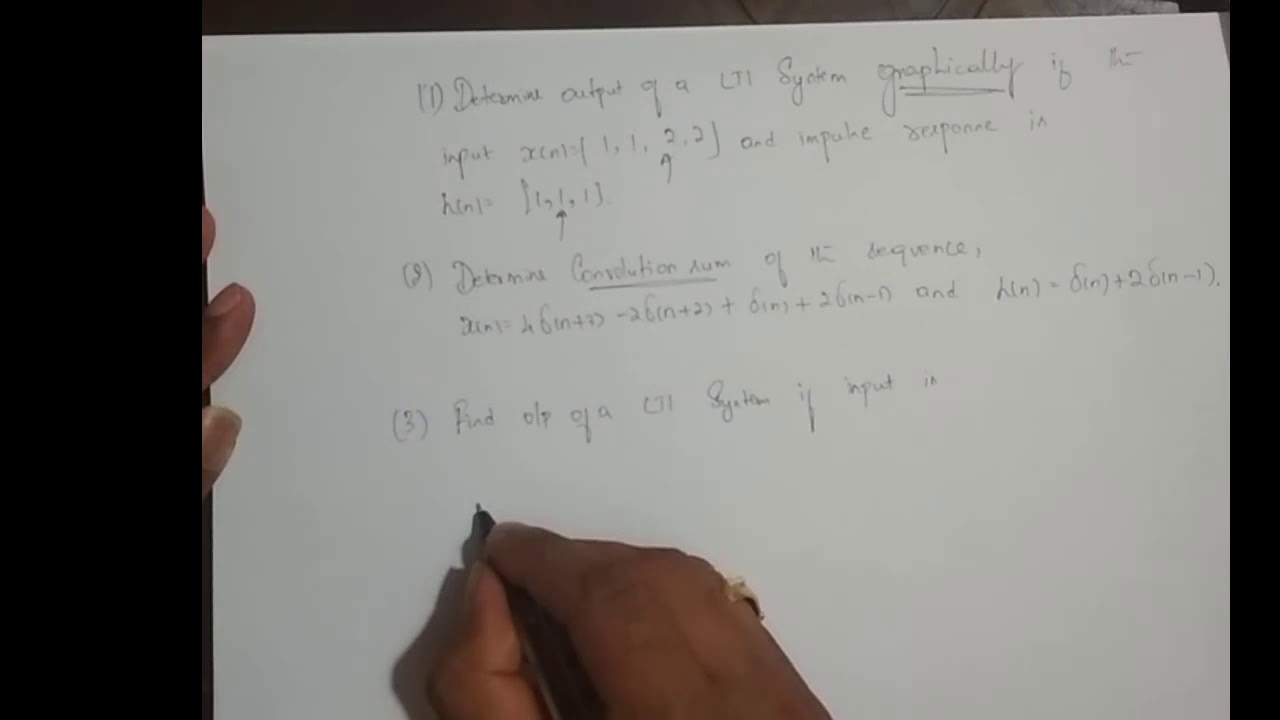 (1) Determine output of a LTI System graphically if the
input x(n)={ 1, 1, 2, 2} and impulse response is
h(n)= {1, 1, 1}.
(2) Determine Convolution sum of the sequence,
x(n)= δ(n+3) -2δ(n+2) + δ(n) + 2δ(n-1) and h(n) = δ(n)+2δ(n-1).
(3) Find o/p of a LTI System if input is